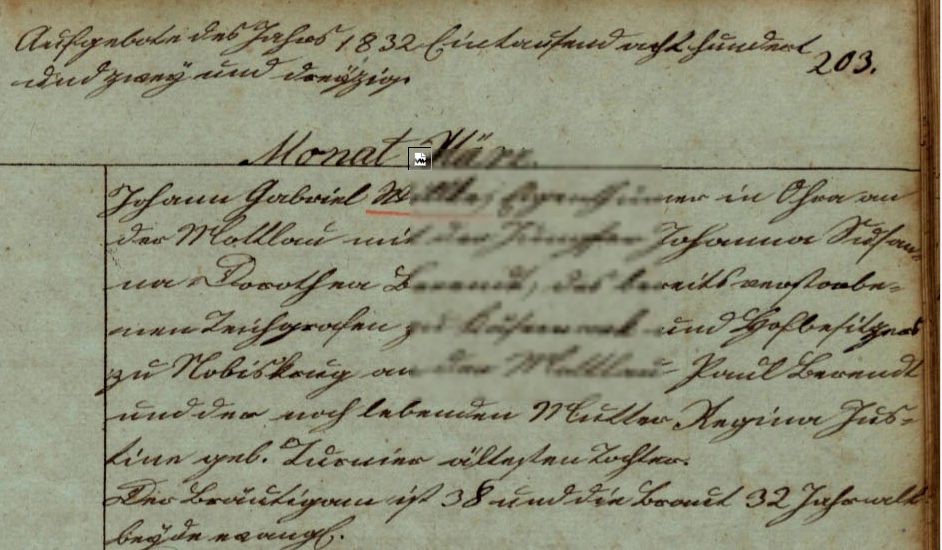 Aufgebote des Jahrs 1832 Eintausend acht hundert
und zwey und dreyzig.
203.
Monat
Johann Gabriel in Ohra an
der Mottlau mit der Johanna Susan
na Dorothea des bereits verstorbe=
nen Teichgrafen zu und Hofbesitzers
zu Nobiskrug an der Mottlau Paul Berendt
und der noch lebenden Mutter Regina Jus=
tine geb. Turnier ältesten Tochter.
Der Bräutigam ist 38 und die Braut 32 Jahr alt
beyde evangl.